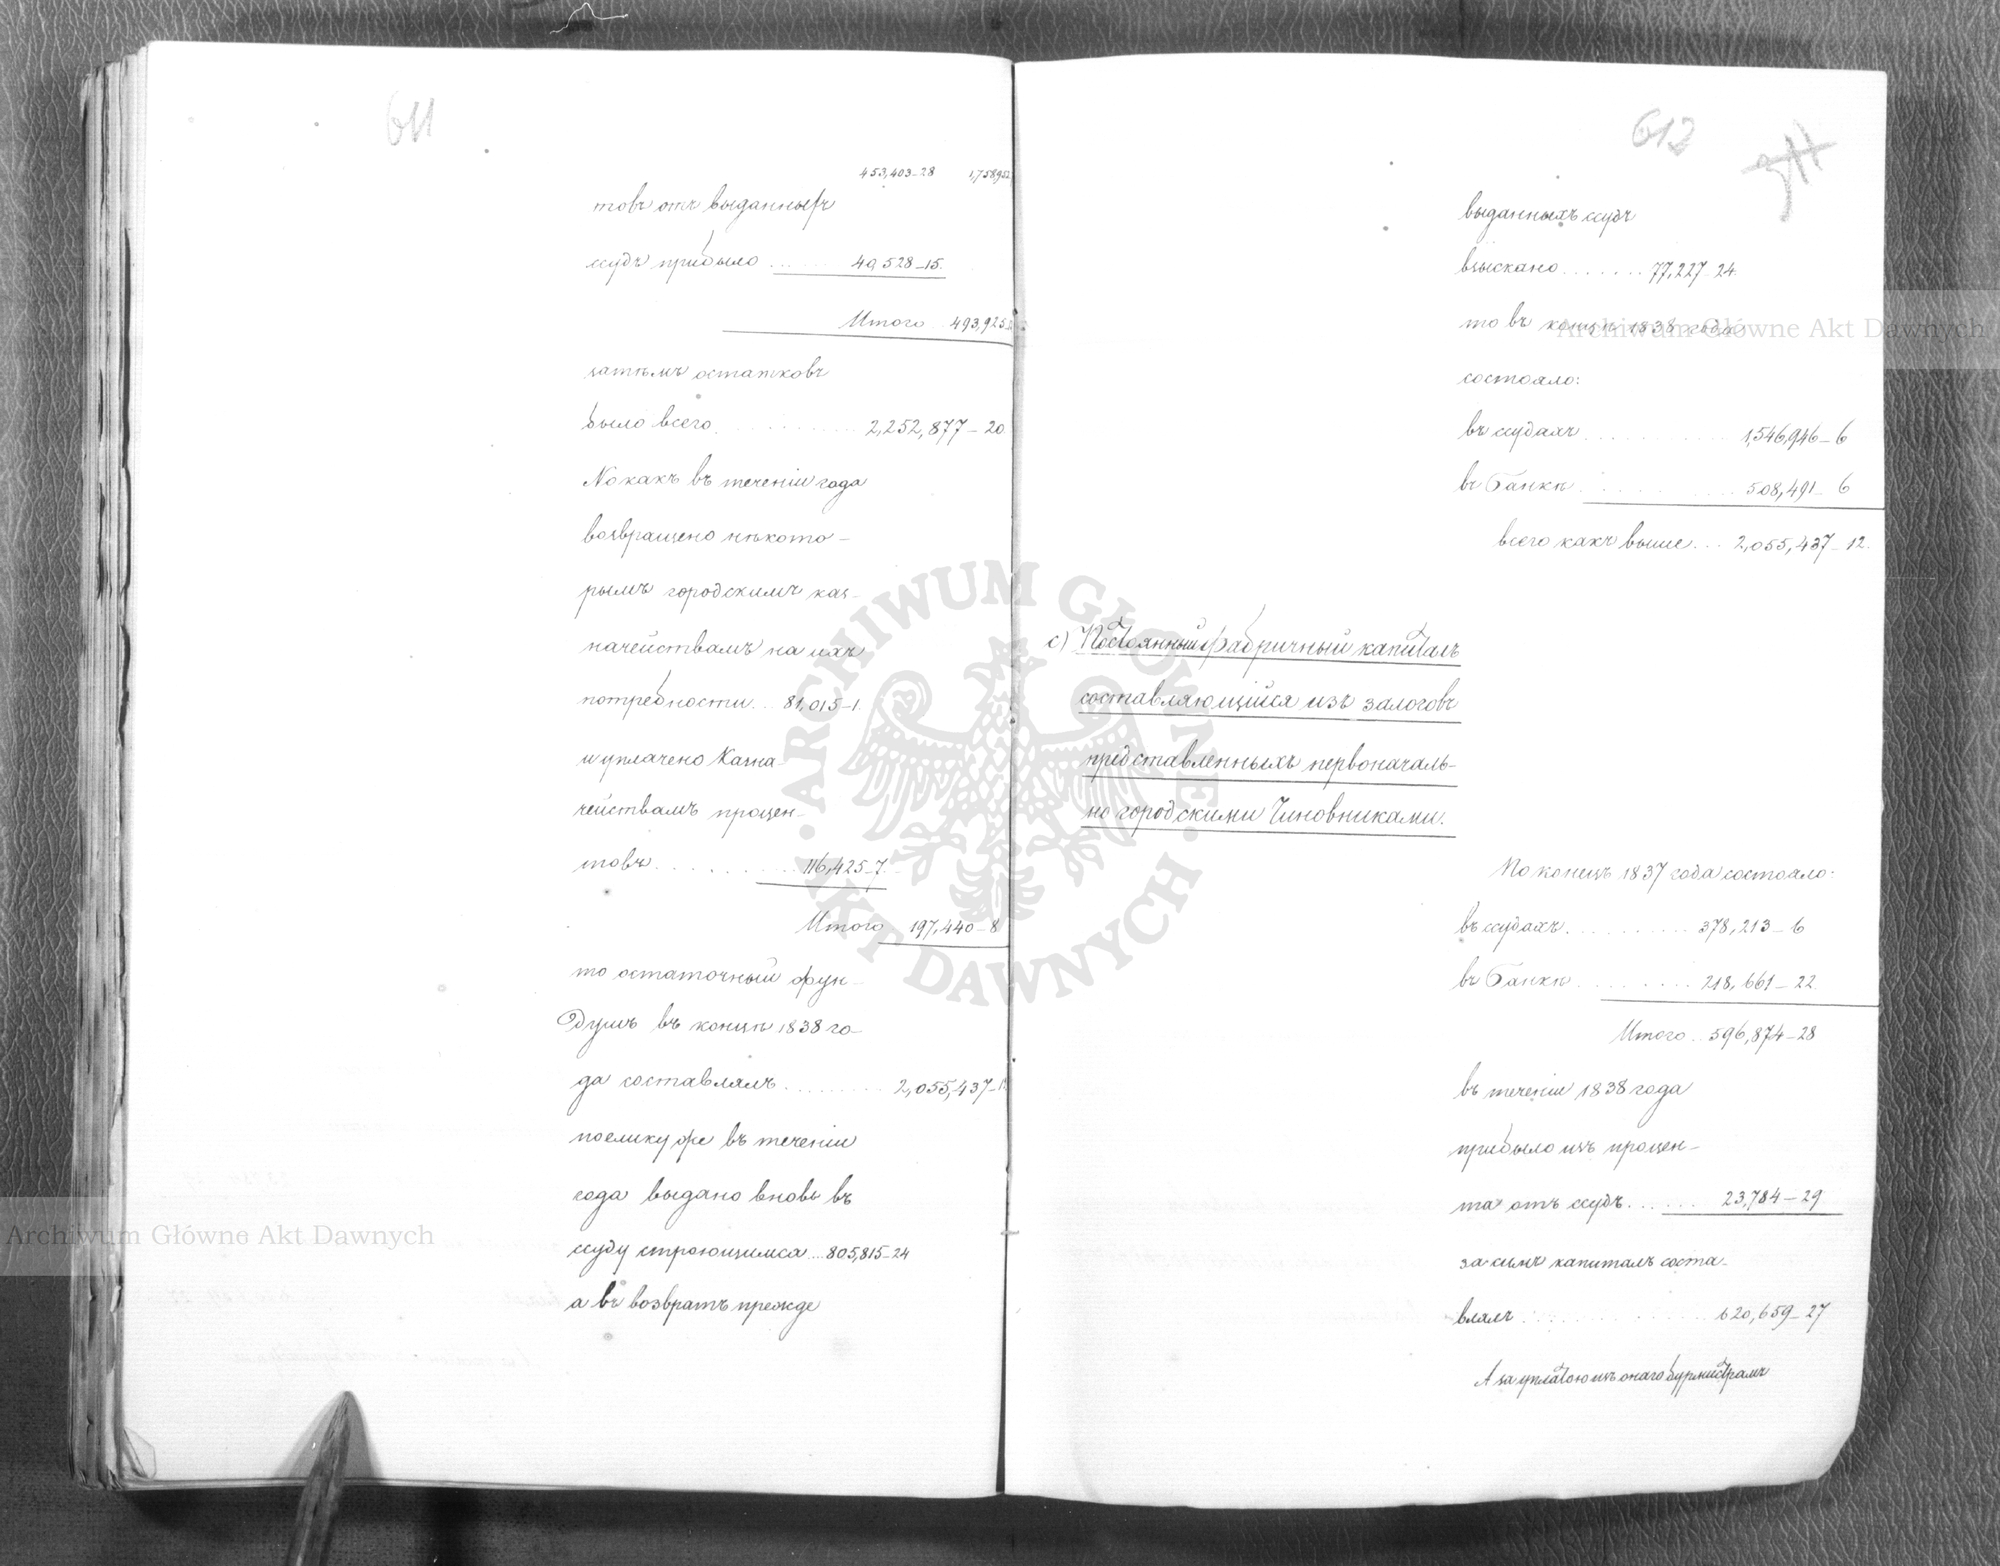 611
453,403-28 1,758,952
товъ отъ выданныхъ
ссудъ прибыло ...... 40,528-15.
Итого .. 493,925
затѣмъ остатковъ
было всего ........... 2,252,877-20.
Но какъ въ теченіи года
возвращено нѣкото-
рымъ городскимъ каз-
начействамъ на ихъ
потребности... 81,015-1.
и уплачено Казна-
чействамъ процен-
товъ .......... 116,425-7.
Итого 197,440-8
то остаточный фун-
душъ въ концѣ 1838 го-
да составлялъ ......... 2,055,437-1
поелику же въ теченіи
года выдано вновь въ
ссуду строющимся ... 805,815-24
а въ возвратъ прежде
612
выданныхъ ссудъ
взыскано ....... 77,227-24.
то въ концѣ 1838 года
состояло:
въ ссудахъ ............ 1,546,946-6
въ Банкѣ ............ 508,491-6
всего какъ выше ... 2,055,437-12.
с) Постоянный фабричный капиталъ
составляющійся изъ залоговъ
представленныхъ первоначаль-
но городскими Чиновниками.
По конецъ 1837 года состояло:
въ ссудахъ ........... 378,213-6
въ Банкѣ .......... 218,661-22
Итого .. 596,874-28
въ теченіи 1838 года
прибыло изъ процен-
та отъ ссудъ ....... 23,784-29
за симъ капиталъ соста-
влялъ .............. 620,659-27
А за уплатою изъ онаго бурмистрамъ
Archiwum Główne Akt Dawnych
Archiwum Główne Akt Dawnych
ARCHIWUM GŁÓWNE AKT DAWNYCH